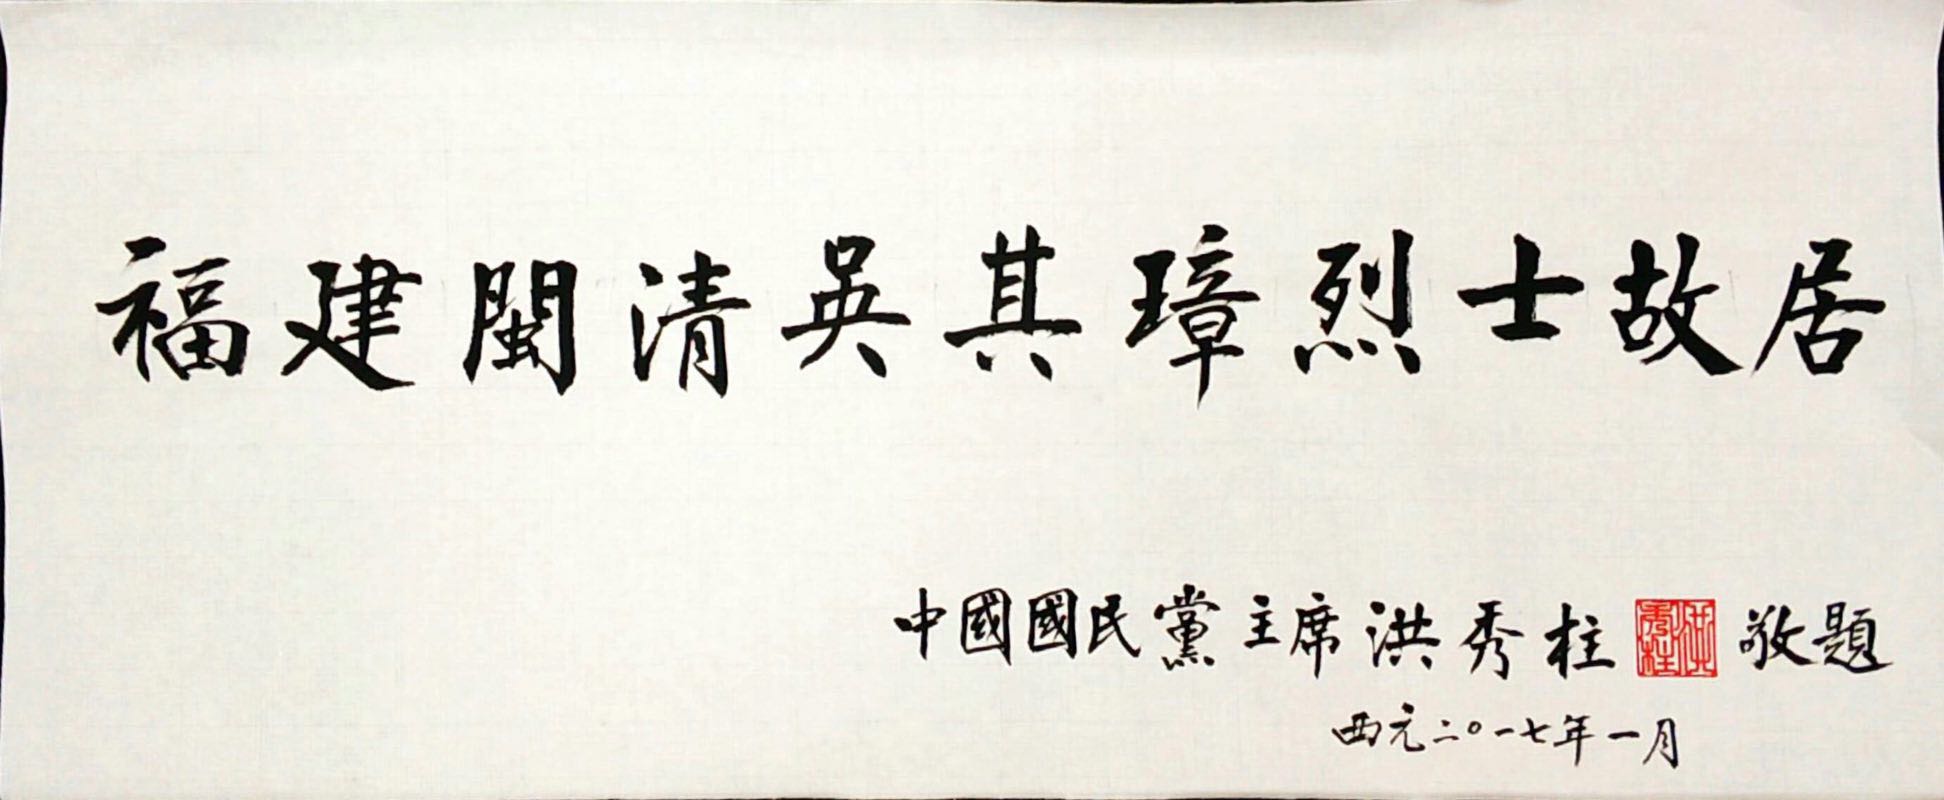 福建閩清吳其璋烈士故居
中國國民黨主席洪秀柱 洪秀柱 敬題
西元二〇一七年一月